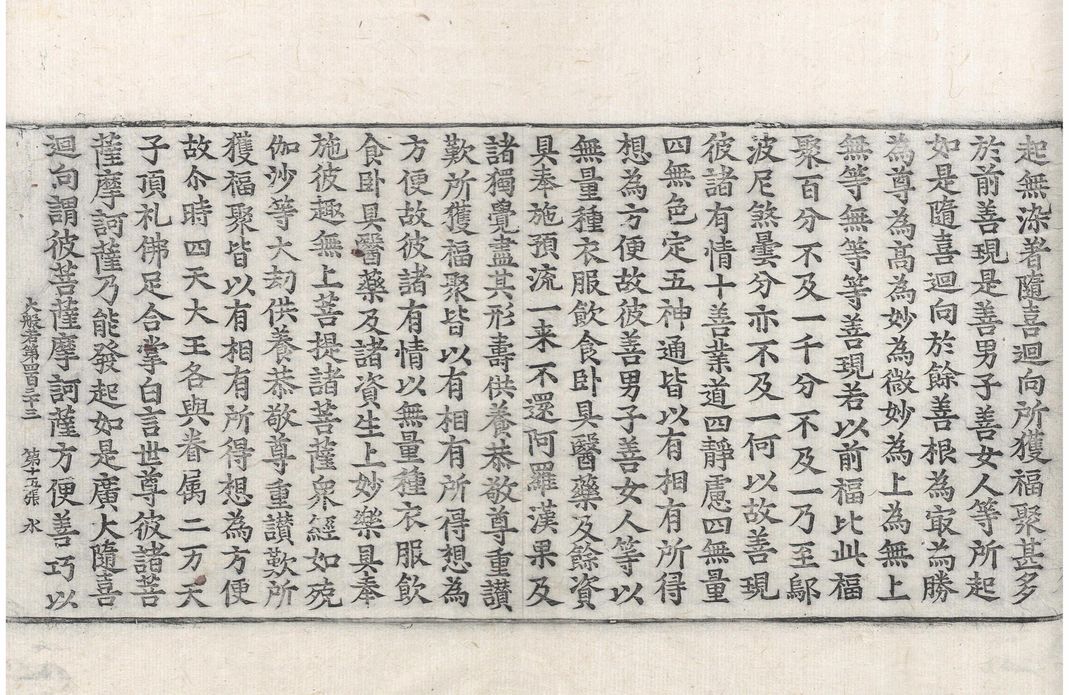 起無染著隨喜迴向所獲福聚甚多
於前善現是善男子善女人等所起
如是隨喜迴向於餘善根為㝡為勝
為尊為髙為妙為微妙為上為無上
無等無等等善現若以前福比此福
聚百分不及一千分不及一乃至鄔
波尼煞曇分亦不及一何以故善現
彼諸有情十善業道四靜慮四無量
四無色定五神通皆以有相有所得
想為方便故彼善男子善女人等以
無量種衣服飲食卧具醫藥及餘資
具奉施預流一来不還阿羅漢果及
諸獨覺盡其形壽供養恭敬尊重讃
歎所獲福聚皆以有相有所得想為
方便故彼諸有情以無量種衣服飲
食卧具醫藥及諸資生上妙樂具奉
施彼趣無上菩提諸菩薩衆經如殑
伽沙等大刧供養恭敬尊重讃歎所
獲福聚皆以有相有所得想為方便
故尒時四天大王各與眷属二万天
子頂礼佛足合掌白言世尊彼諸菩
薩摩訶薩乃能發起如是廣大隨喜
迴向謂彼菩薩摩訶薩方便善巧以
大般若第四百三十三 第十五張 水